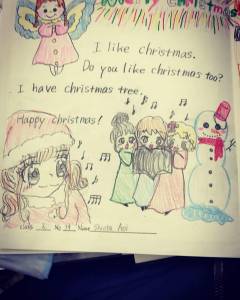 Merry Christmas
I like christmas.
Do you like christmas too?
I have christmas tree.
Happy christmas!
Class 6 No 14 Name